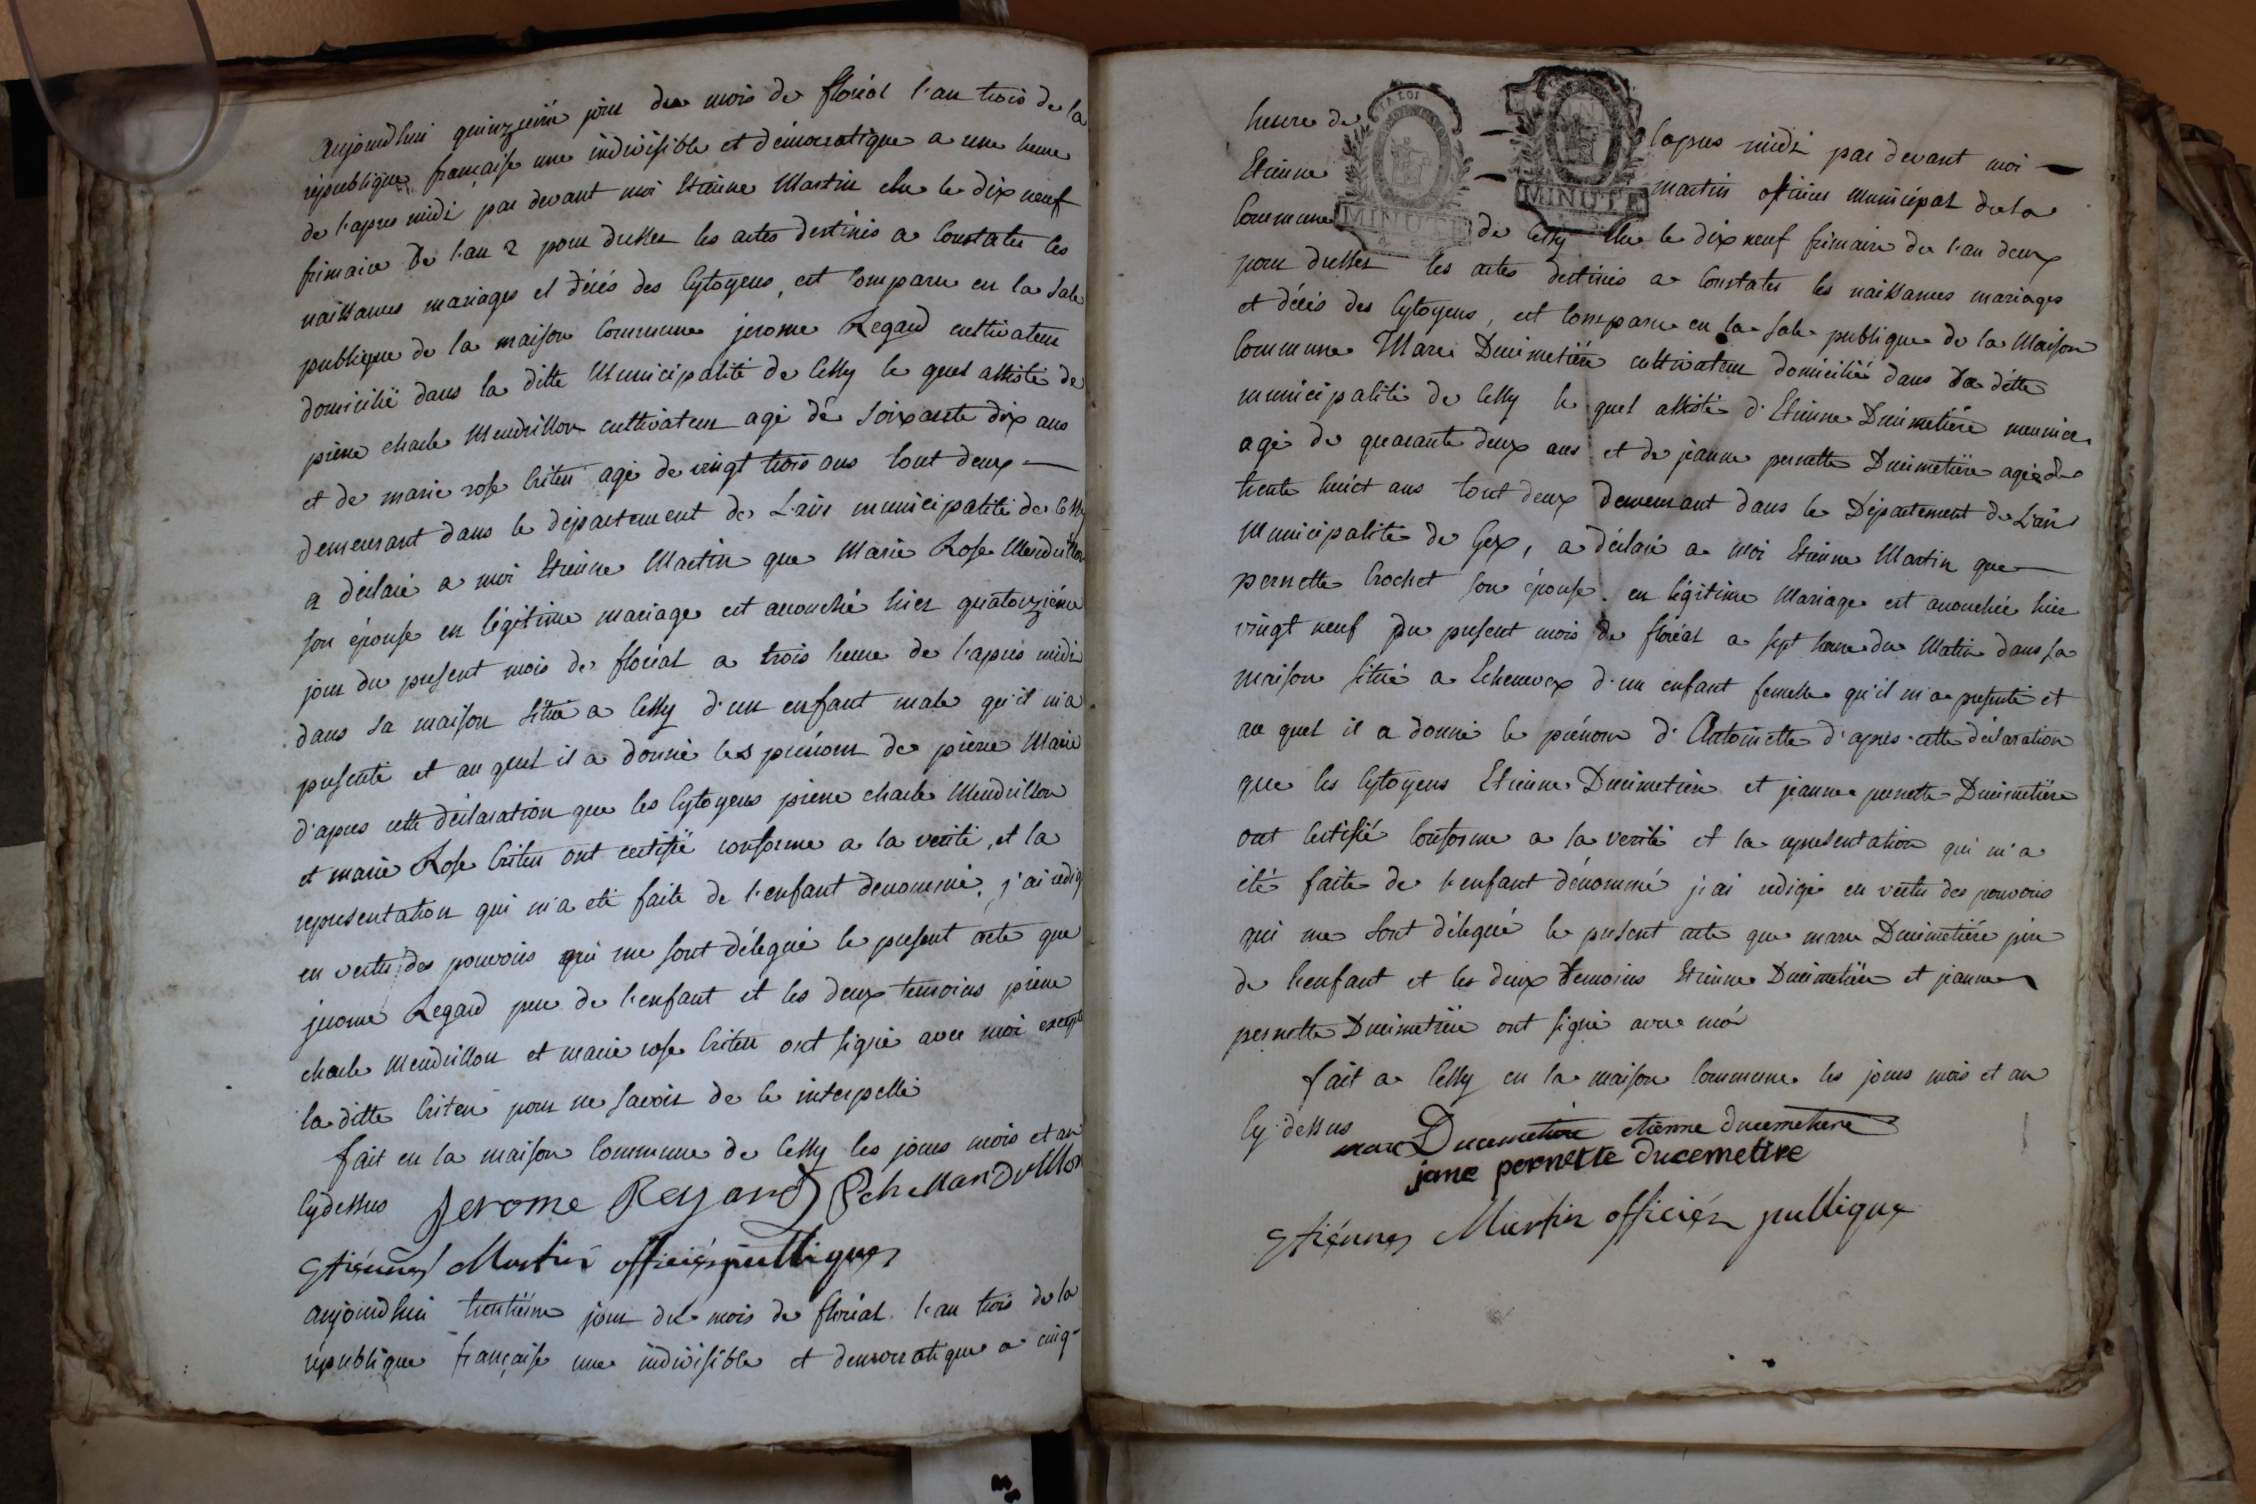 aujourdhui quinzieme jour du mois de floréal l'an trois de la
republique française une indivisible et démocratique a une heure
de l'apres midi par devant moi Etienne Martin elu le dix neuf
frimaire de l'an 2 pour dresser les actes destinés a constater les
naissances mariages et décés des cytoyens, est comparu en la sale
publique de la maison commune jerome Regard cultivateur
domicilié dans la ditte Municipalité de Cessy le quel assisté de
pierre charle Mendrillon cultivateur agé de soixante dix ans
et de marie rose Criteu agé de vingt trois ans tout deux —
demeurant dans le département de L'ain municipalité de Cessy
a déclaré a moi Etienne Martin que Marie Rose Mendrillon
son épouse en légitime mariage est acouché hier quatorziéme
jour du present mois de floréal a trois heure de l'apres midi
dans sa maison situé a Cessy d'un enfant male qu'il m'a
presenté et au quel il a donné les prénoms de pierre Marie
d'apres cette déclaration que les Cytoyens pierre charle Mendrillon
et marie Rose Criteu ont certifié conforme a la verité, et la
representation qui m'a eté faite de l'enfant dénommé, j'ai rédigé
en vertu des pouvoirs qui me sont délegué le present acte que
jerome Regard pere de l'enfant et les deux temoins pierre
charle Mendrillon et marie rose Criteu ont signé avec moi excepté
la ditte Criteu pour ne savoir de le interpellé
fait en la maison commune de Cessy les jours mois et an
cydessus Jerome Regard P ch Mandrillon
Etiénne Martin officiér publique
aujourdhui trentiéme jour du mois de floréal l'an trois de la
republique française une indivisible et democratique a cinq
heure de l'apres midi par devant moi —
LA LOI
MINUTE
MINUTE
Etienne Martin officier municipal de la
Commune de Cessy elu le dix neuf frimaire de l'an deux
pour dresser les actes destinés a constater les naissances mariages
et décés des Cytoyens, est comparu en la sale publique de la Maison
Commune Marc Ducimetiére cultivateur domicilié dans la ditte
municipalité de Cessy le quel assisté d'Etienne Ducimetiére meunier
agé de quarante deux ans et de jeanne pernette Ducimetiére agée de
trente huict ans tout deux demeurant dans le Département de L'ain
Municipalité de Gex, a déclaré a moi Etienne Martin que —
pernette Crochet son épouse en légitime Mariage est acouchée hier
vingt neuf du present mois de floréal a sept heure du Matin dans sa
maison situé a Echenevex d'un enfant femelle qu'il m'a presenté et
au quel il a donné le prénom d'Antoinette d'apres cette déclaration
que les Cytoyens Etienne Ducimetiere et jeanne pernette Ducimetiére
ont certifié conforme a la verité et la representation qui m'a
été faite de l'enfant dénommé j'ai redigé en vertu des pouvoirs
qui me sont délegué le present acte que marc Ducimetiére pere
de l'enfant et les deux temoins Etienne Ducimetiére et jeanne
pernette Ducimetiére ont signé avec moi
fait a Cessy en la maison Commune les jours mois et an
cy dessus
marc Ducemetiere etienne ducemetiere
jane pernette ducemetire
Etiénne Martin officiér publique